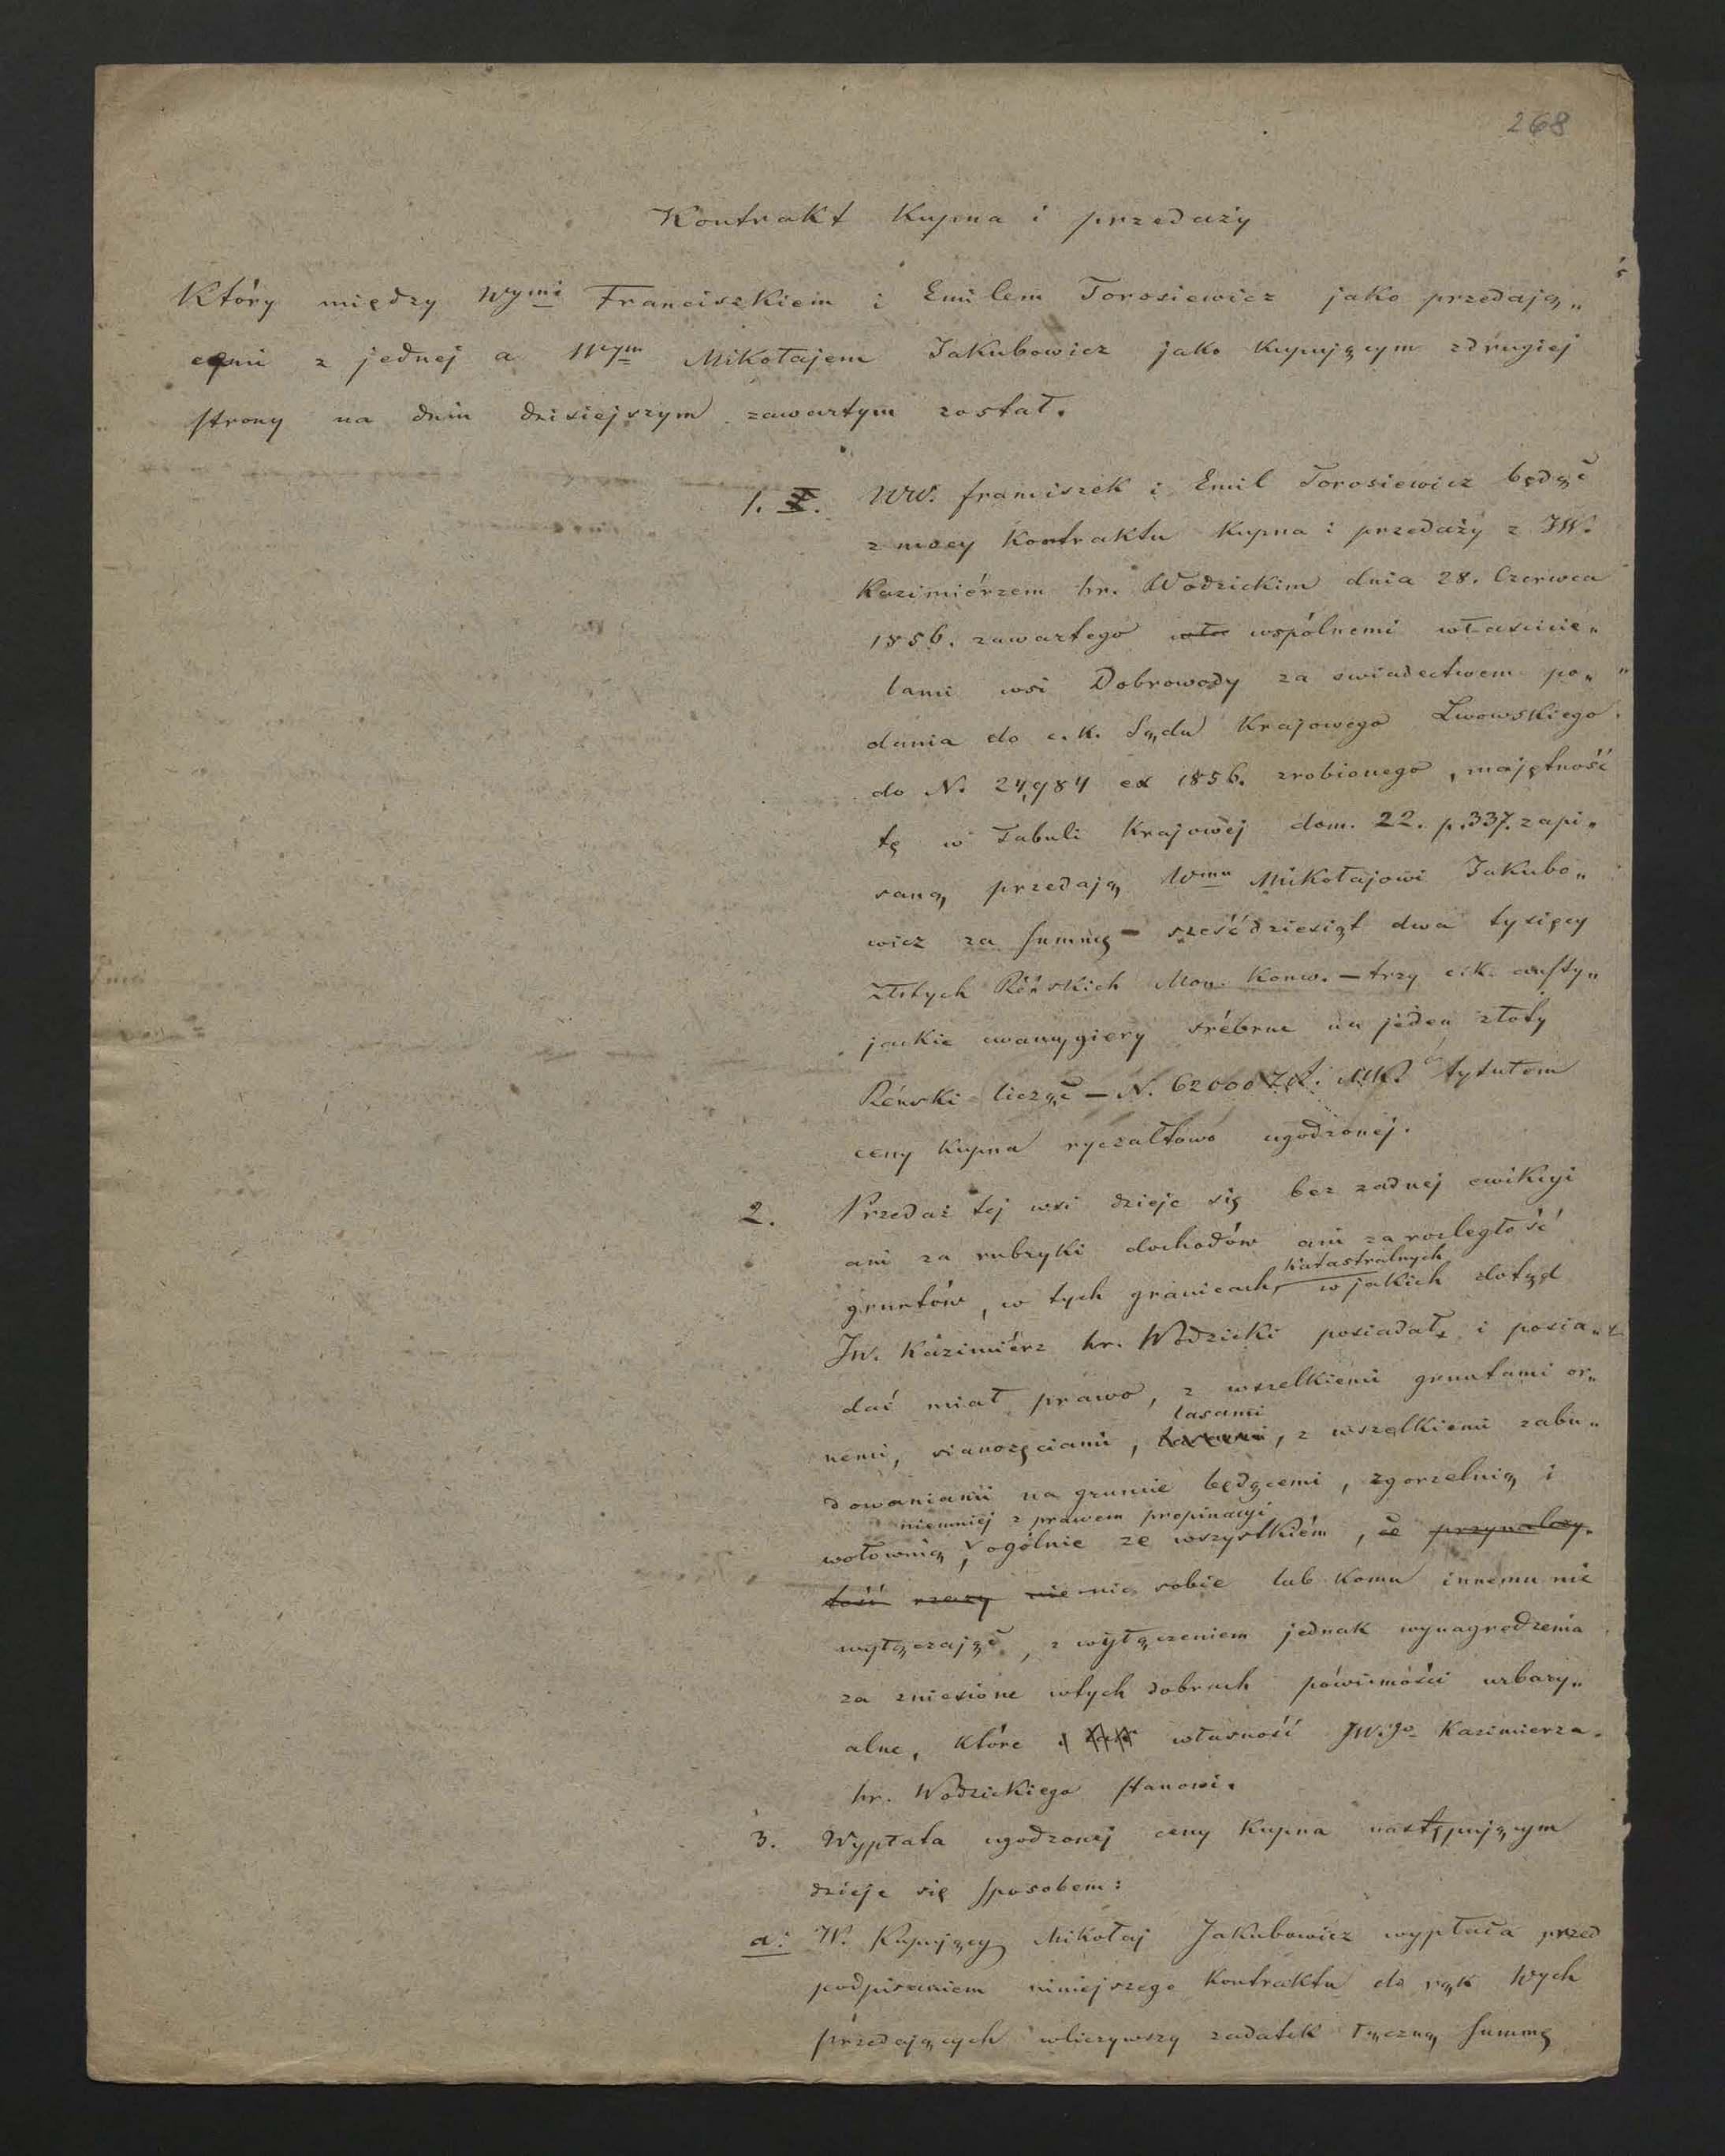 268
Kontrakt Kupna i przedaży
Który między Wymi Franciszkiem i Emilem Torosiewicz jako przedają„
cymi z jednej a Wym Mikołajem Jakubowicz jako kupującym zdrugiej
strony na dniu dzisiejszym zawartym został.
1. WW. franciszek i Emil Torosiewicz będąc
z mocy Kontraktu Kupna i przedaży z JW.
Kazimiérzem hr. Wodzickim dnia 28. Czerwca
1856. zawartego wspólnemi właścicie„
lami wsi Dobrowody za swiadectwem po„
dania do c.k. Sądu Krajowego Lwowskiego
do N. 24,984 ex 1856. zrobionego, majętność
tę w Tabuli Krajowéj dom. 22. p. 337. zapi„
saną przedają Wmu Mikołajowi Jakubo„
wicz za summę – sześćdziesiąt dwa tysięcy
złotych Réńskich Mon. Konw. – trzy c.k. austry„
jackie cwancygiery srébrne na jeden złoty
Réński licząc – N. 62000 Zł. MK. tytułem
ceny kupna ryczałtowo ugodzonéj.
2. Przedaż tej wsi dzieje się bez żadnej ewikcyi
ani za rubryki dochodów ani za rozległość
katastralnych
gruntów, w tych granicach, w jakich dotąd
JW. Kazimiérz hr. Wodzicki posiadał, i posia„
dać miał prawo, z wszelkiemi gruntami or„
lasami
nemi, sianożęciami, z wszelkiemi zabu„
dowaniami na gruncie będącemi, zgorzelnią i
niemniej z prawem propinacyi
wołownią i ogólnie ze wszystkiém, co przynależy„
tość rzeczy nie nic sobie lub komu innemu nie
wyłączając, z wyłączeniem jednak wynagrodzenia
za zniesione wtych dobrach powinności urbary„
alne, które własność JW.go Kazimierza
hr. Wodzickiego stanowi.
3. Wypłata ugodzonej ceny Kupna następującym
dzieje się sposobem:
a. W. Kupujący Mikołaj Jakubowicz wypłaca przed
podpisaniem niniejszego Kontraktu do rąk Wych
przedających wliczywszy zadatek łączną summę